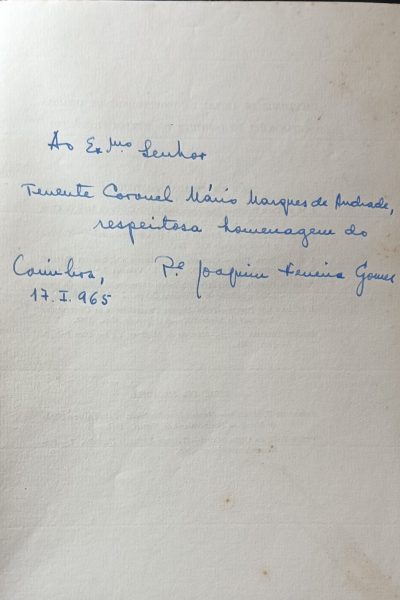 Ao Ex.mo Senhor
Tenente Coronel Mário Marques de Andrade,
respeitosa homenagem do
Coimbra, P.e Joaquim Ferreira Gomes
17.I.965